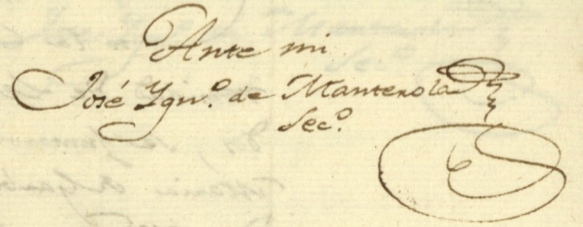 Ante mi
José Ygn.º de Manterola
Sec.º